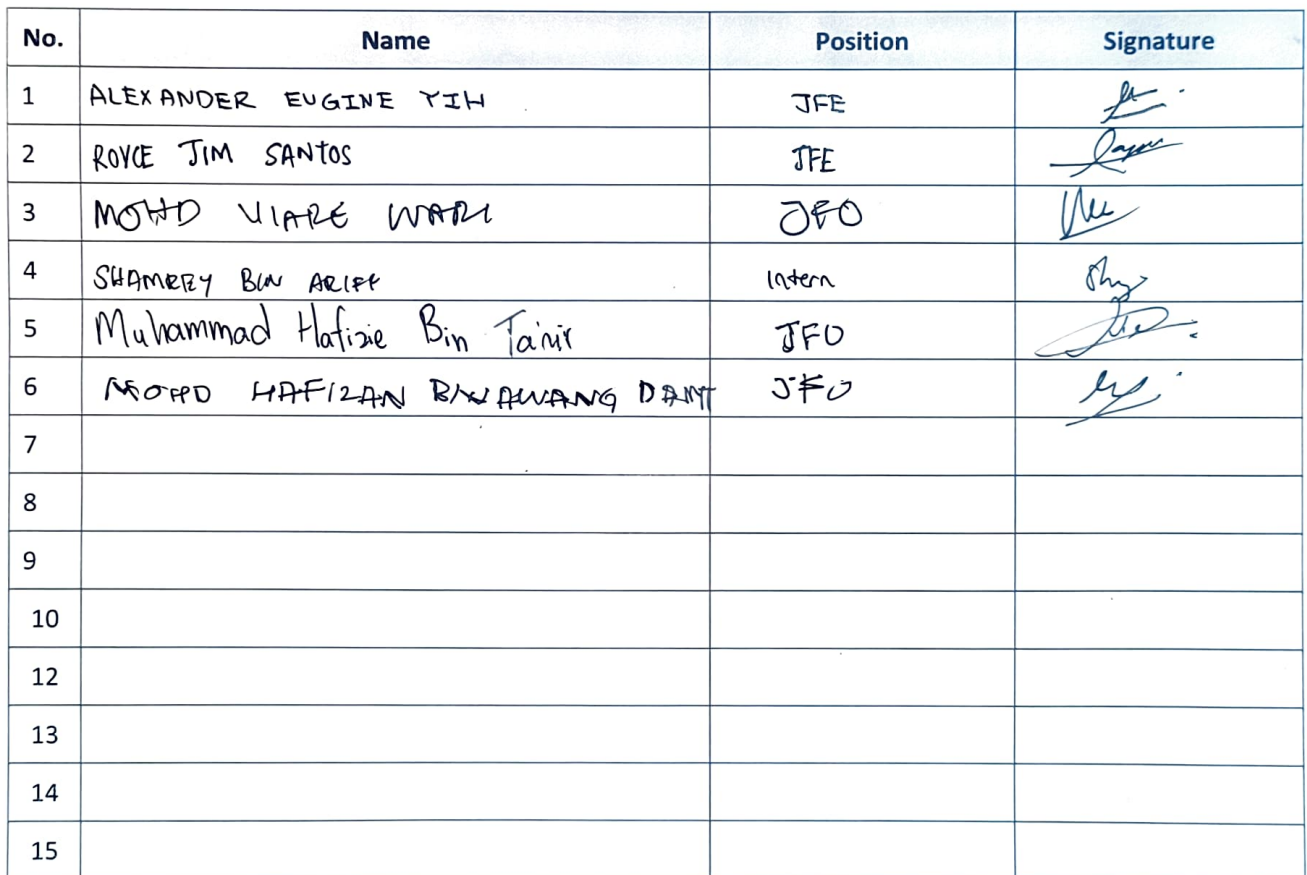 No. Name Position Signature
1 ALEXANDER EUGINE YIH JFE
2 ROYCE JIM SANTOS JFE
3 MOHD VIARE WARI JFO
4 SHAMREY BIN ARIFF Intern
5 Muhammad Hafizie Bin Ta'nir JFO
6 MOHD HAFIZAN BIN AWANG DAMIT JFO
7
8
9
10
12
13
14
15